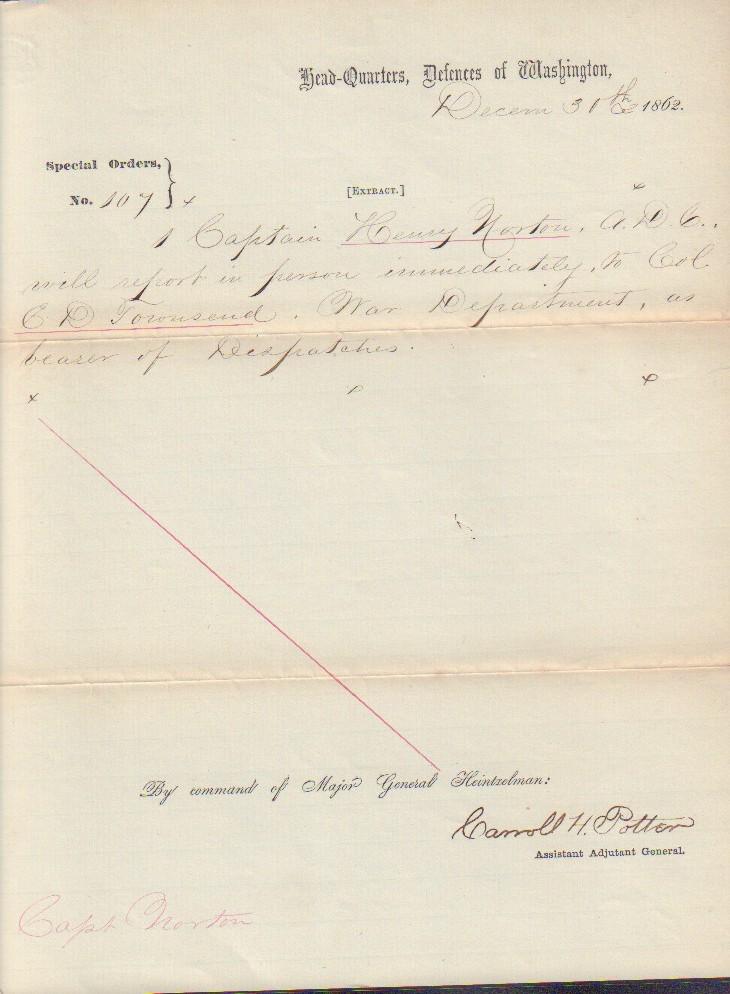 Head-Quarters, Defences of Washington,
Decem 31th 1862.
Special Orders,
No. 107
[Extract.]
x x
1 Captain Henry Norton, A. D. C.,
will report in person immediately, to Col.
E. D. Townsend. War Department, as
bearer of Despatches.
x x x
By command of Major General Heintzelman:
Carroll H. Potter
Assistant Adjutant General.
Capt Norton